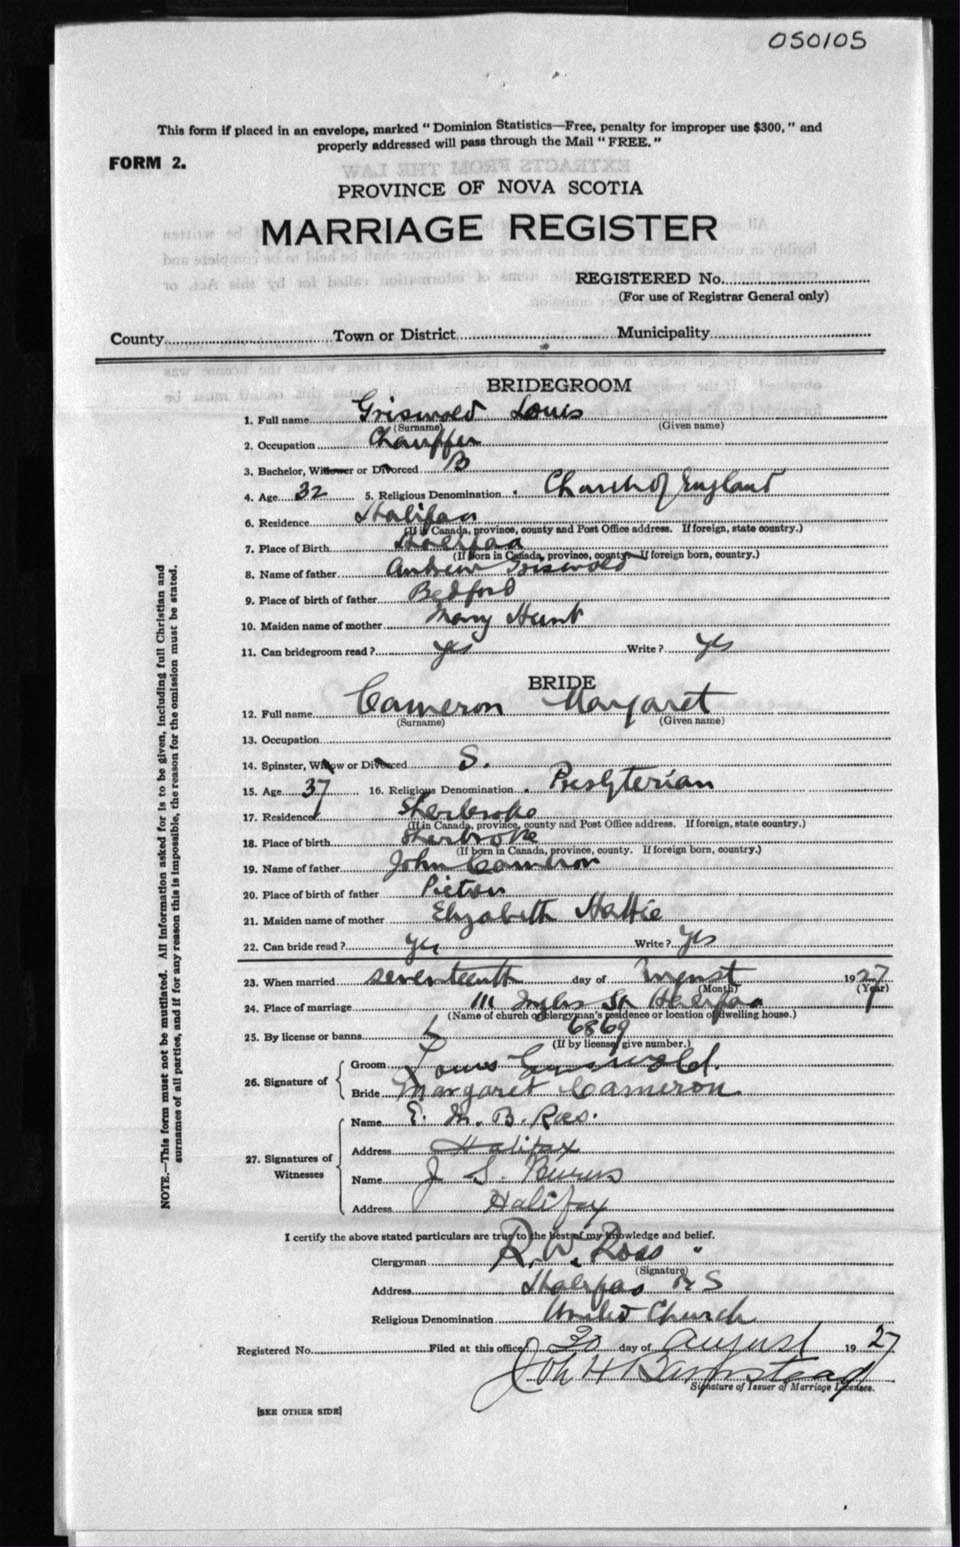 050105
This form if placed in an envelope, marked "Dominion Statistics—Free, penalty for improper use $300," and
properly addressed will pass through the Mail "FREE."
FORM 2.
PROVINCE OF NOVA SCOTIA
MARRIAGE REGISTER
REGISTERED No.
(For use of Registrar General only)
County Town or District Municipality
BRIDEGROOM
1. Full name Griswold Louis
(Surname) (Given name)
2. Occupation Chauffer
3. Bachelor, Widower or Divorced B
4. Age 32 5. Religious Denomination Church of England
6. Residence Halifax
(If in Canada, province, county and Post Office address. If foreign, state country.)
7. Place of Birth Halifax
(If born in Canada, province, county. If foreign born, country.)
8. Name of father Andrew Griswold
9. Place of birth of father Bedford
10. Maiden name of mother Mary Hunt
11. Can bridegroom read? yes Write? yes
BRIDE
12. Full name Cameron Margaret
(Surname) (Given name)
13. Occupation
14. Spinster, Widow or Divorced S.
15. Age 37 16. Religious Denomination Presbyterian
17. Residence Sherbroke
(If in Canada, province, county and Post Office address. If foreign, state country.)
18. Place of birth Sherbroke
(If born in Canada, province, county. If foreign born, country.)
19. Name of father John Cameron
20. Place of birth of father Pictou
21. Maiden name of mother Elizabeth Hattie
22. Can bride read? yes Write? yes
23. When married seventeenth day of August 1927
(Month) (Year)
24. Place of marriage 111 St Halifax
(Name of church or clergyman's residence or location of dwelling house.)
25. By license or banns L 6869
(If by license, give number.)
26. Signature of
Groom Louis Griswold.
Bride Margaret Cameron
27. Signatures of
Witnesses
Name E. M. B. Ross.
Address Halifax
Name J. S.
Address Halifax
I certify the above stated particulars are true to the best of my knowledge and belief.
Clergyman R. W. Ross
(Signature)
Address Halifax N S
Religious Denomination United Church
Registered No. Filed at this office 30 day of August 1927
H Barnstead
Signature of Issuer of Marriage Licenses.
[SEE OTHER SIDE]
NOTE.—This form must not be mutilated. All information asked for is to be given, including full Christian and
surnames of all parties, and if for any reason this is impossible, the reason for the omission must be stated.